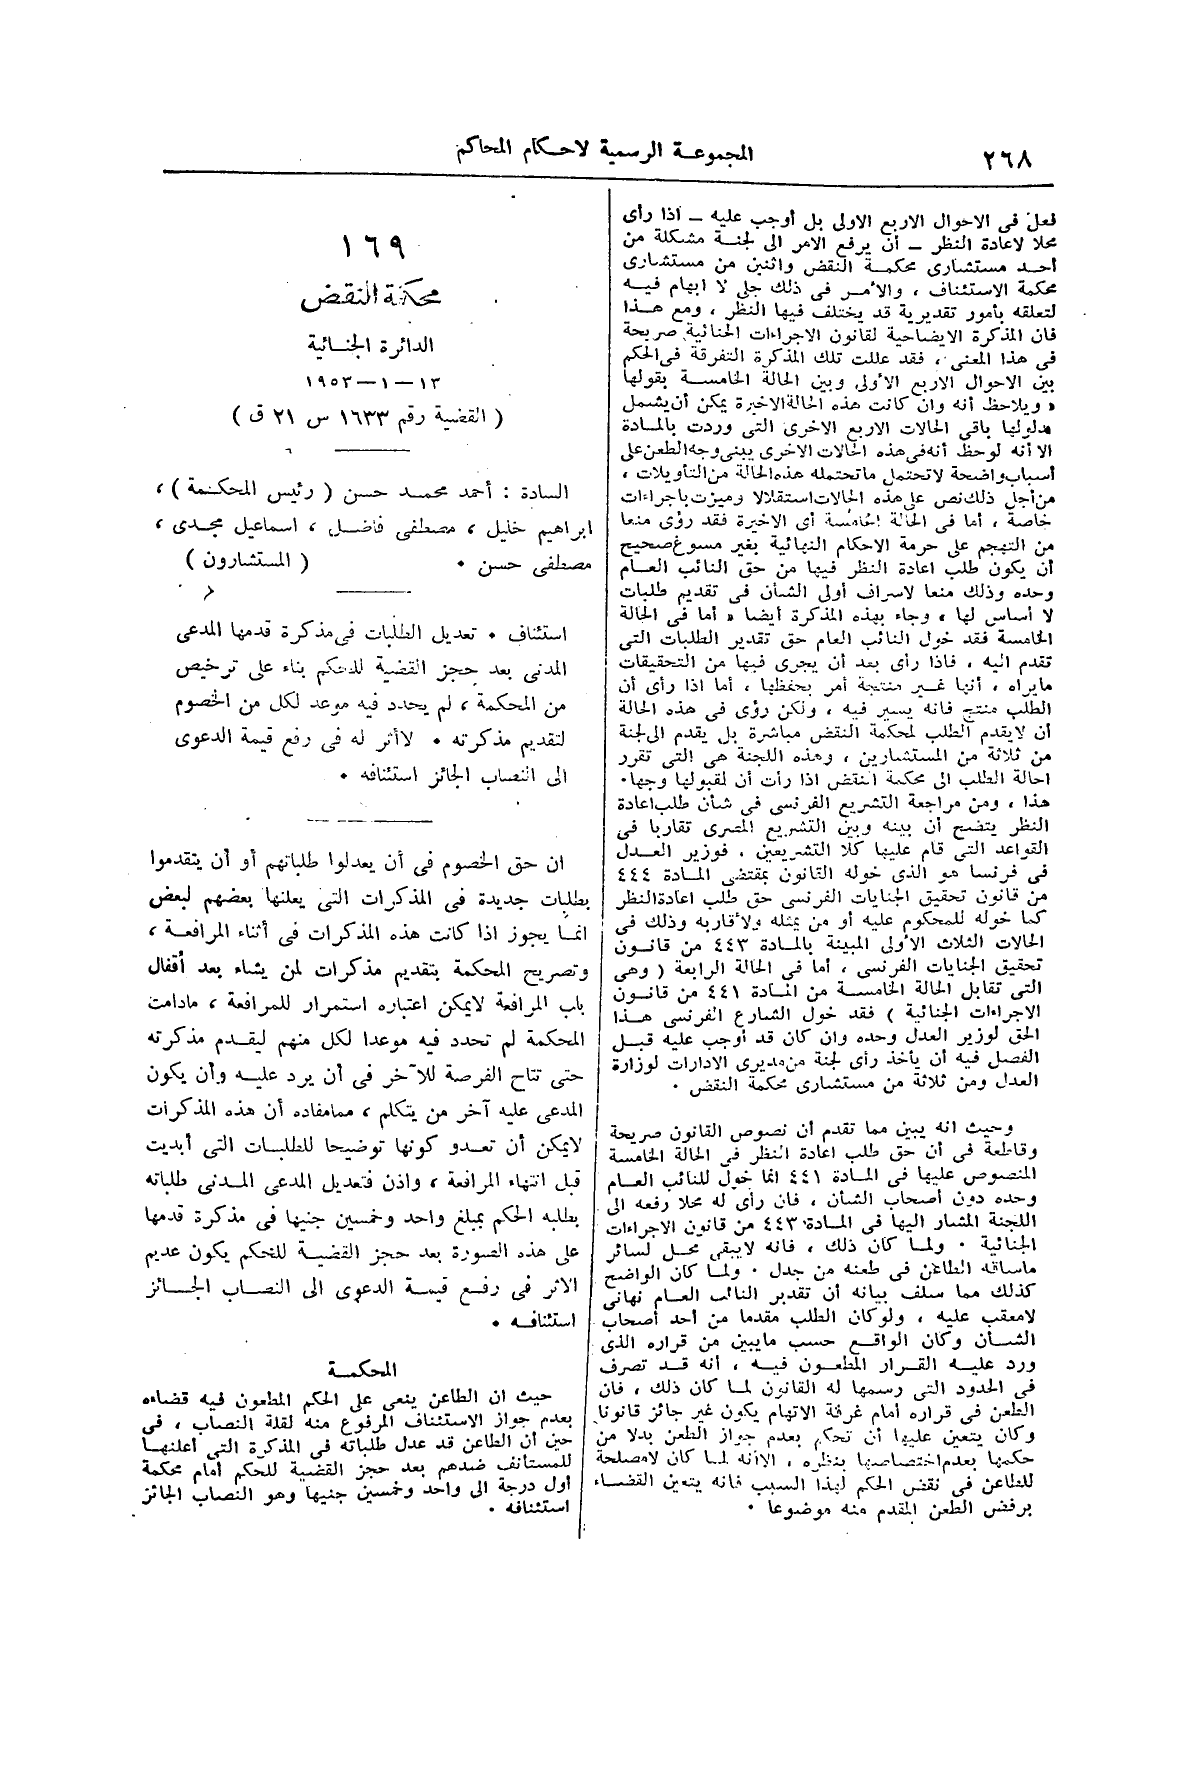 ٢٦٨
المجموعة الرسمية لاحكام المحاكم
فعل فى الاحوال الاربع الاولى بل أوجب عليه ـ اذا رأى
محلا لاعادة النظر ـ أن يرفع الامر الى لجنة مشكلة من
أحد مستشارى محكمة النقض واثنين من مستشارى
محكمة الاستئناف ، والأمر فى ذلك جلى لا ابهام فيه
لتعلقه بأمور تقديرية قد يختلف فيها النظر ، ومع هذا
فان المذكرة الايضاحية لقانون الاجراءات الجنائية صريحة
فى هذا المعنى ، فقد عللت تلك المذكرة التفرقة فى الحكم
بين الاحوال الاربع الأولى وبين الحالة الخامسة بقولها
« ويلاحظ أنه وان كانت هذه الحالة الاخيرة يمكن أن يشمل
مدلولها باقى الحالات الاربع الاخرى التى وردت بالمادة
الا أنه لوحظ أنه فى هذه الحالات الاخرى يبنى وجه الطعن على
أسباب واضحة لا تحتمل ما تحتمله هذه الحالة من التأويلات ،
من أجل ذلك نص على هذه الحالات استقلالا وميزت باجراءات
خاصة ، أما فى الحالة الخامسة أى الاخيرة فقد رؤى منعا
من التهجم على حرمة الاحكام النهائية بغير مسوغ صحيح
أن يكون طلب اعادة النظر فيها من حق النائب العام
وحده وذلك منعا لاسراف أولى الشأن فى تقديم طلبات
لا أساس لها » وجاء بهذه المذكرة أيضا « أما فى الحالة
الخامسة فقد خول النائب العام حق تقدير الطلبات التى
تقدم اليه ، فاذا رأى بعد أن يجرى فيها من التحقيقات
مايراه ، أنها غير منتجة أمر بحفظها ، أما اذا رأى أن
الطلب منتج فانه يسير فيه ، ولكن رؤى فى هذه الحالة
أن لايقدم الطلب لمحكمة النقض مباشرة بل يقدم الى لجنة
من ثلاثة من المستشارين ، وهذه اللجنة هى التى تقرر
احالة الطلب الى محكمة النقض اذا رأت أن لقبولها وجها٠
هذا ، ومن مراجعة التشريع الفرنسى فى شأن طلب اعادة
النظر يتضح أن بينه وبين التشريع المصرى تقاربا فى
القواعد التى قام عليها كلا التشريعين ، فوزير العدل
فى فرنسا هو الذى خوله القانون بمقتضى المادة ٤٤٤
من قانون تحقيق الجنايات الفرنسى حق طلب اعادة النظر
كما خوله للمحكوم عليه أو من يمثله ولأقاربه وذلك فى
الحالات الثلاث الأولى المبينة بالمادة ٤٤٣ من قانون
تحقيق الجنايات الفرنسى ، أما فى الحالة الرابعة ( وهى
التى تقابل الحالة الخامسة من المادة ٤٤١ من قانون
الاجراءات الجنائية ) فقد خول الشارع الفرنسى هذا
الحق لوزير العدل وحده وان كان قد أوجب عليه قبل
الفصل فيه أن يأخذ رأى لجنة من مديرى الادارات لوزارة
العدل ومن ثلاثة من مستشارى محكمة النقض ٠
وحيث انه يبين مما تقدم أن نصوص القانون صريحة
وقاطعة فى أن حق طلب اعادة النظر فى الحالة الخامسة
المنصوص عليها فى المادة ٤٤١ انما خول للنائب العام
وحده دون أصحاب الشأن ، فان رأى له محلا رفعه الى
اللجنة المشار اليها فى المادة ٤٤٣ من قانون الاجراءات
الجنائية ٠ ولما كان ذلك ، فانه لايبقى محل لسائر
ماساقه الطاعن فى طعنه من جدل ٠ ولما كان الواضح
كذلك مما سلف بيانه أن تقدير النائب العام نهائى
لامعقب عليه ، ولو كان الطلب مقدما من أحد أصحاب
الشأن وكان الواقع حسب مايبين من قراره الذى
ورد عليه القرار المطعون فيه ، أنه قد تصرف
فى الحدود التى رسمها له القانون لما كان ذلك ، فان
الطعن فى قراره أمام غرفة الاتهام يكون غير جائز قانونا
وكان يتعين عليها أن تحكم بعدم جواز الطعن بدلا من
حكمها بعدم اختصاصها بنظره ، الا أنه لما كان لامصلحة
للطاعن فى نقض الحكم لهذا السبب فانه يتعين القضاء
برفض الطعن المقدم منه موضوعا ٠
١٦٩
محكمة النقض
الدائرة الجنائية
١٣ــ١ــ١٩٥٣
( القضية رقم ١٦٣٣ س ٢١ ق )
السادة : أحمد محمد حسن ( رئيس المحكمة ) ،
ابراهيم خليل ، مصطفى فاضل ، اسماعيل مجدى ،
مصطفى حسن ٠ ( المستشارون )
استئناف ٠ تعديل الطلبات فى مذكرة قدمها المدعى
المدنى بعد حجز القضية للحكم بناء على ترخيص
من المحكمة ، لم يحدد فيه موعد لكل من الخصوم
لتقديم مذكرته ٠ لا أثر له فى رفع قيمة الدعوى
الى النصاب الجائز استئنافه ٠
ان حق الخصوم فى أن يعدلوا طلباتهم أو أن يتقدموا
بطلبات جديدة فى المذكرات التى يعلنها بعضهم لبعض
انما يجوز اذا كانت هذه المذكرات فى أثناء المرافعة ،
وتصريح المحكمة بتقديم مذكرات لمن يشاء بعد أقفال
باب المرافعة لايمكن اعتباره استمرار للمرافعة ، مادامت
المحكمة لم تحدد فيه موعدا لكل منهم ليقدم مذكرته
حتى تتاح الفرصة للآخر فى أن يرد عليه وأن يكون
المدعى عليه آخر من يتكلم ، ممامفاده أن هذه المذكرات
لايمكن أن تعدو كونها توضيحا للطلبات التى أبديت
قبل انتهاء المرافعة ، واذن فتعديل المدعى المدنى طلباته
بطلبه الحكم بمبلغ واحد وخمسين جنيها فى مذكرة قدمها
على هذه الصورة بعد حجز القضية للحكم يكون عديم
الاثر فى رفع قيمة الدعوى الى النصاب الجائز
استئنافه ٠
المحكمة
حيث ان الطاعن ينعى على الحكم المطعون فيه قضاءه
بعدم جواز الاستئناف المرفوع منه لقلة النصاب ، فى
حين أن الطاعن قد عدل طلباته فى المذكرة التى أعلنها
للمستأنف ضدهم بعد حجز القضية للحكم أمام محكمة
أول درجة الى واحد وخمسين جنيها وهو النصاب الجائز
استئنافه ٠